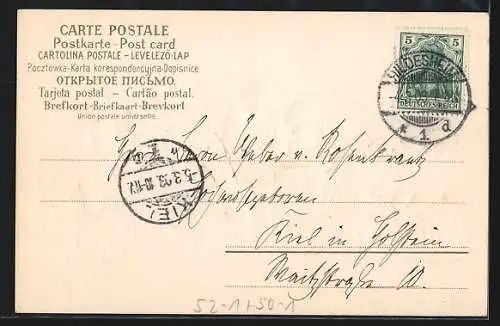 CARTE POSTALE
Postkarte - Post card
CARTOLINA POSTALE - LEVELEZÖ-LAP
Pocztowka-Karta korespondencyjna-Dopisnice
ОТКРЫТОЕ ПИСЬМО.
Tarjeta postal - Cartão postal.
Brefkort-Briefkaart-Brevkort
Union postale universelle.
5 5
DEUTSCHES REICH
HILDESHEIM
* 1 d
KIEL
Herrn Baron Weber v. Rosenkrantz
Hochwohlgeboren
Kiel in Holstein
Waitzstraße 10.
52-1+50-1